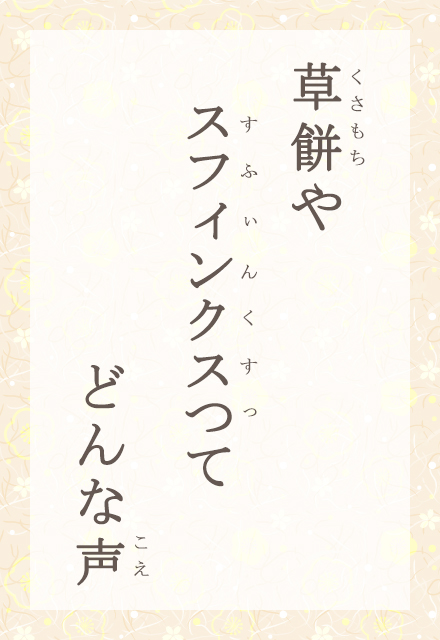 くさもち
草餅や
すふぃんくすっ
スフィンクスつて
どんな声
こえ